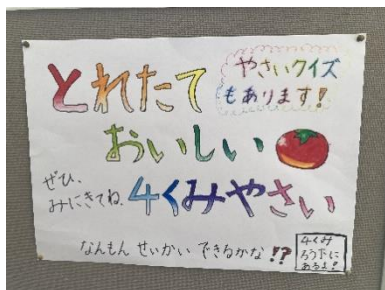 とれたて
やさいクイズ
もあります!
おいしい
ぜひ、
みにきてね、
4くみやさい
なんもん せいかい できるかな!?
4くみ
ろう下に
あるよ!